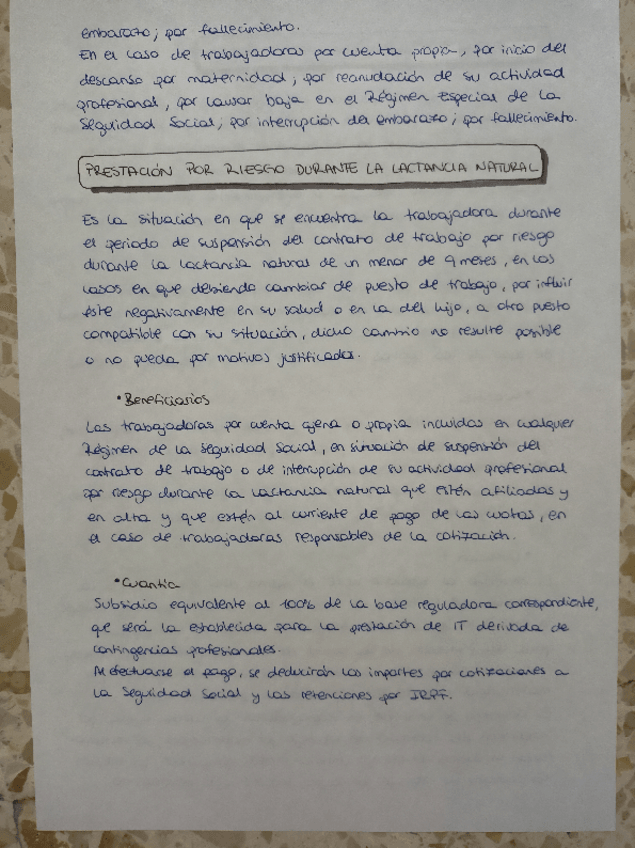 embarazo; por fallecimiento.
En el caso de trabajadoras por cuenta propia, por inicio del
descanso por maternidad; por reanudación de su actividad
profesional, por causar baja en el Régimen Especial de la
Seguridad Social; por interrupción del embarazo; por fallecimiento.
PRESTACIÓN POR RIESGO DURANTE LA LACTANCIA NATURAL
Es la situación en que se encuentra la trabajadora durante
el periodo de suspensión del contrato de trabajo por riesgo
durante la lactancia natural de un menor de 9 meses, en los
casos en que debiendo cambiar de puesto de trabajo, por influir
éste negativamente en su salud o en la del hijo, a otro puesto
compatible con su situación, dicho cambio no resulte posible
o no pueda por motivos justificados.
• Beneficiarios
Las trabajadoras por cuenta ajena o propia incluidas en cualquier
Régimen de la Seguridad Social, en situación de suspensión del
contrato de trabajo o de interrupción de su actividad profesional
por riesgo durante la lactancia natural que estén afiliadas y
en alta y que estén al corriente de pago de las cuotas, en
el caso de trabajadoras responsables de la cotización.
• Cuantía
Subsidio equivalente al 100% de la base reguladora correspondiente,
que será la establecida para la prestación de IT derivada de
contingencias profesionales.
Al efectuarse el pago, se deducirán los importes por cotizaciones a
la Seguridad Social y las retenciones por IRPF.